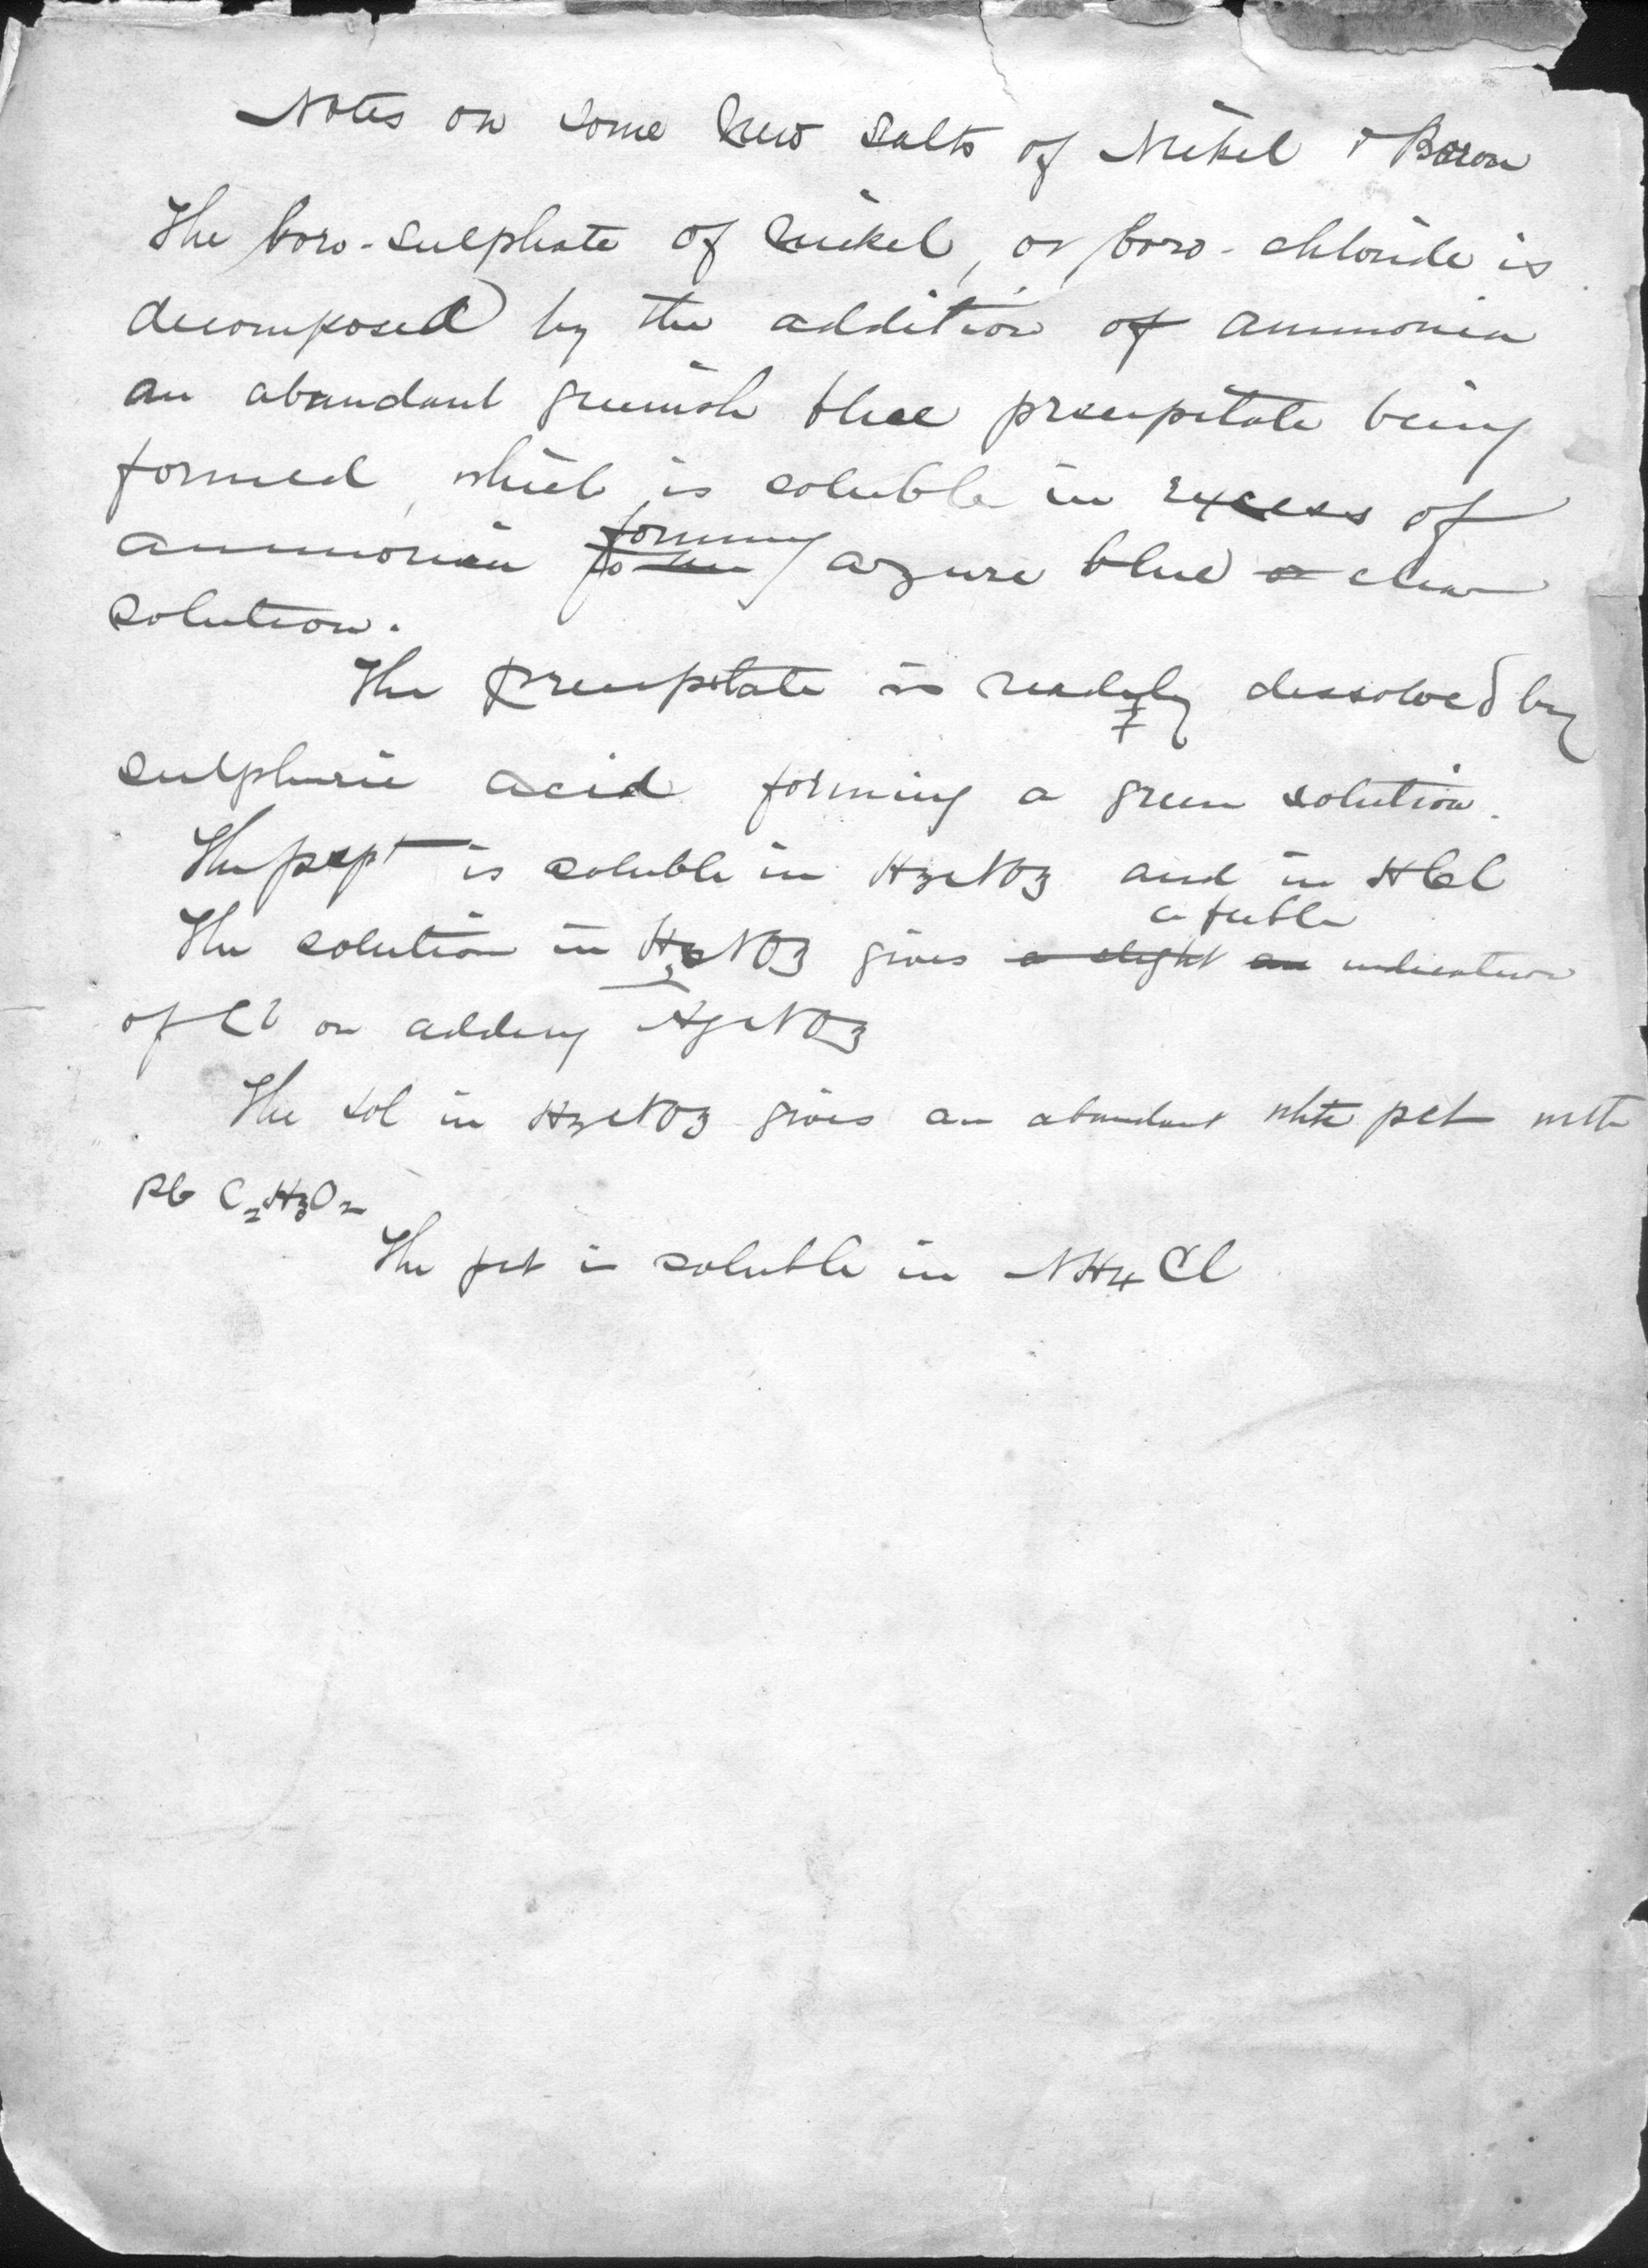 Notes on some New Salts of Nickel & Boron
The boro-sulphate of Nickel, or boro-chloride is
decomposed by the addition of ammonia
an abundant greenish blue precipitate being
formed, which is soluble in excess of
ammonia forming azure blue clear
solution.
The precipitate is readily dissolved by
sulphuric acid forming a green solution.
The pcpt is soluble in H3NO3 and in HCl
a feeble
The solution in H3NO3 gives a slight an indication
of Cl on adding AgNO3
The sol in H3NO3 gives an abundant white pct with
Pb C2H3O2
The pct is soluble in NH4Cl